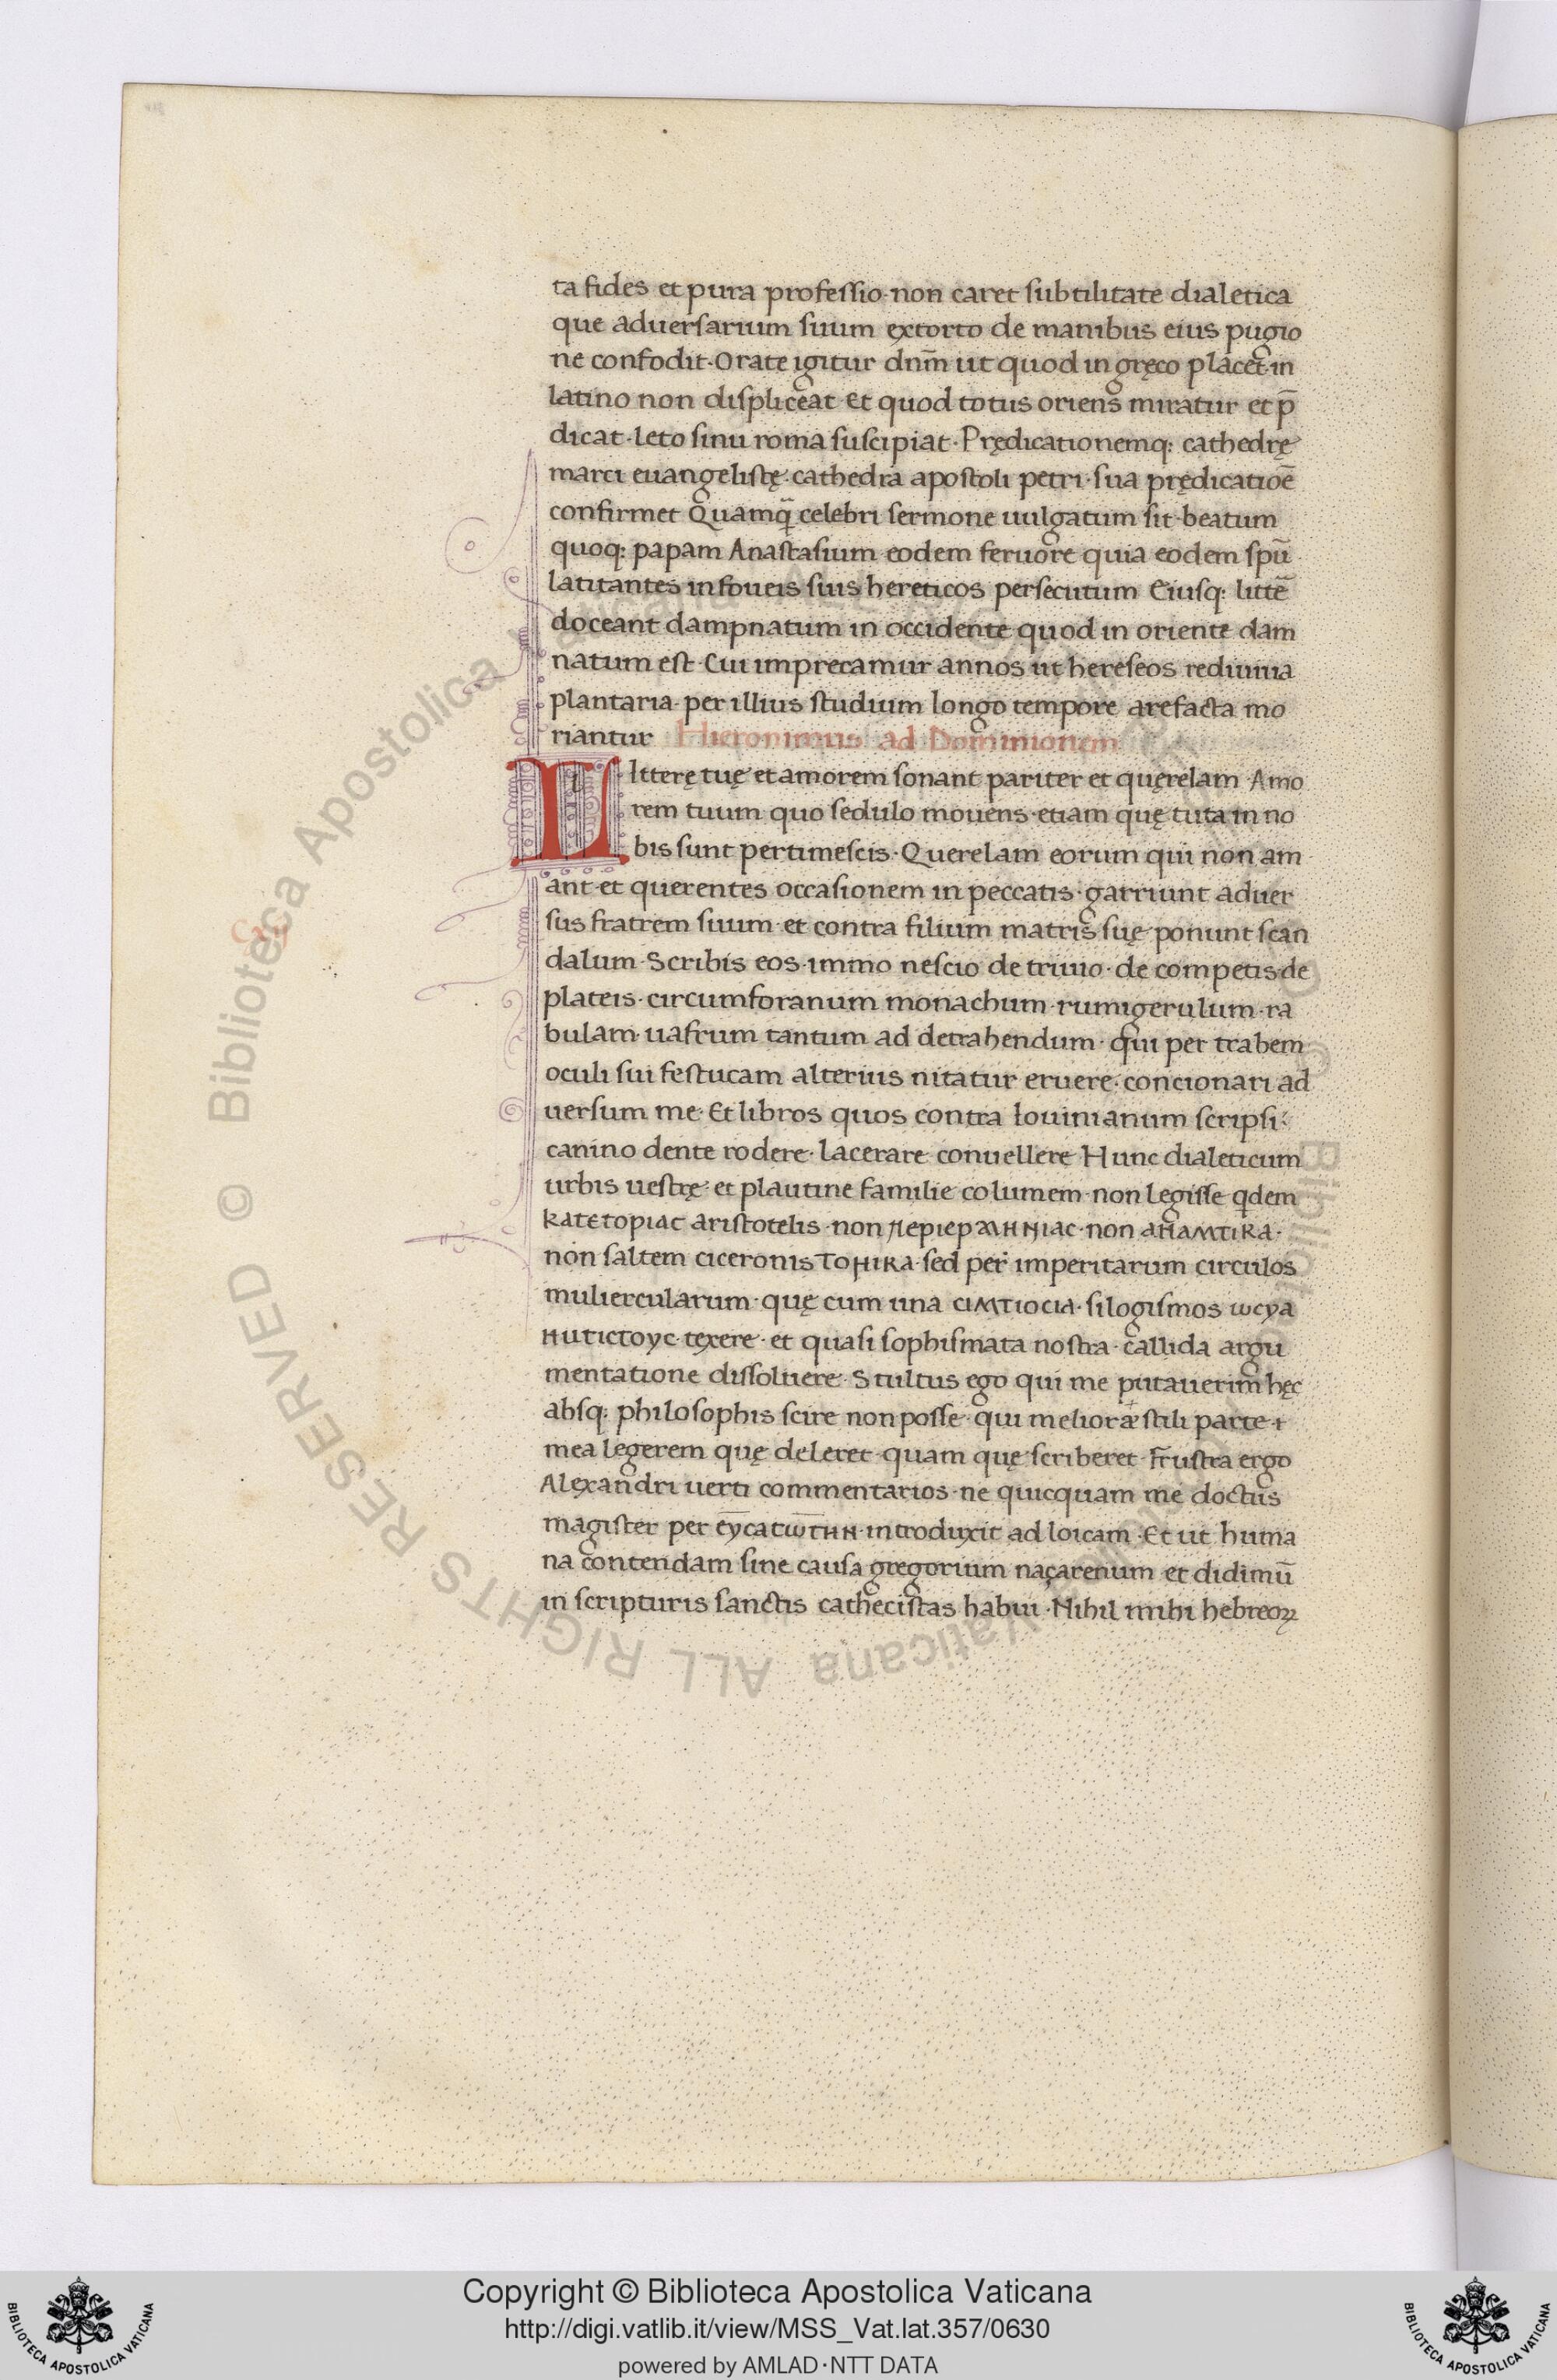 ta fides et pura professio· non caret subtilitate dialetica
que aduersarium suum extorto de manibus eius pugio
ne confodit· Orate igitur dnm̅ ut quod in gręco placet· in
latino non displiceat· Et quod totus oriens miratur et p̅
dicat· leto sinu roma suscipiat· Prędicationemq: cathedrę
marci euangelistę· cathedra apostoli petri· sua prędicatioē
confirmet Quamq̄ celebri sermone uulgatum sit· beatum
quoq: papam Anastasium eodem feruore quia eodem spū
latitantes in foueis suis hereticos persecutum Eiusq: littē
doceant dampnatum in occidente quod in oriente dam
natum est· Cui imprecamur annos ut hereseos rediuiua
plantaria· per illius studium longo tempore arefacta mo
riantur Hieronimus ad Domnionem
LIttere tuę et amorem sonant pariter et quęrelam· Amo
rem tuum quo sedulo mouens· etiam quę tuta in no
bis sunt pertimescis· Querelam eorum qui non am
ant· et querentes occasionem in peccatis· garriunt aduer
sus fratrem suum· et contra filium matris suę ponunt scan
dalum· Scribis eos· immo nescio de triuio· de competis· de
plateis· circumforanum monachum· rumigerulum· ra
bulam· uafrum tantum ad detrahendum· qui per trabem
oculi sui festucam alterius nitatur eruere· concionari ad
uersum me· Et libros quos contra Iouinianum scripsi·
canino dente rodere· lacerare· conuellere Hunc dialeticum
urbis uestrę· et plautine familie columem· non legisse qdem
ΚΑΤΕΤΟΡΙΑC aristotelis· non
non saltem ciceronis ΤΟΗΙΚΑ· sed per imperitarum circulos
muliercularum· quę cum una silogismos
texere· et quasi sophismata nostra· callida argu
mentatione dissoluere· Stultus ego qui me putauerim hęc
absq: philosophis scire non posse· qui melioræ stili parte
mea legerem quę deleret· quam quę scriberet· Frustra ergo
Alexandri uerti commentarios· ne quicquam me doctus
magister per introduxit ad loicam· Et ut huma
na contendam sine causa gregorium naçarenum et didimū
in scripturis sanctis cathecistas habui· Nihil mihi hebreoꝝ
© Biblioteca Apostolica Vaticana ALL RIGHTS RESERVED
Copyright © Biblioteca Apostolica Vaticana
http://digi.vatlib.it/view/MSS_Vat.lat.357/0630
powered by AMLAD·NTT DATA
BIBLIOTECA APOSTOLICA VATICANA
BIBLIOTECA APOSTOLICA VATICANA